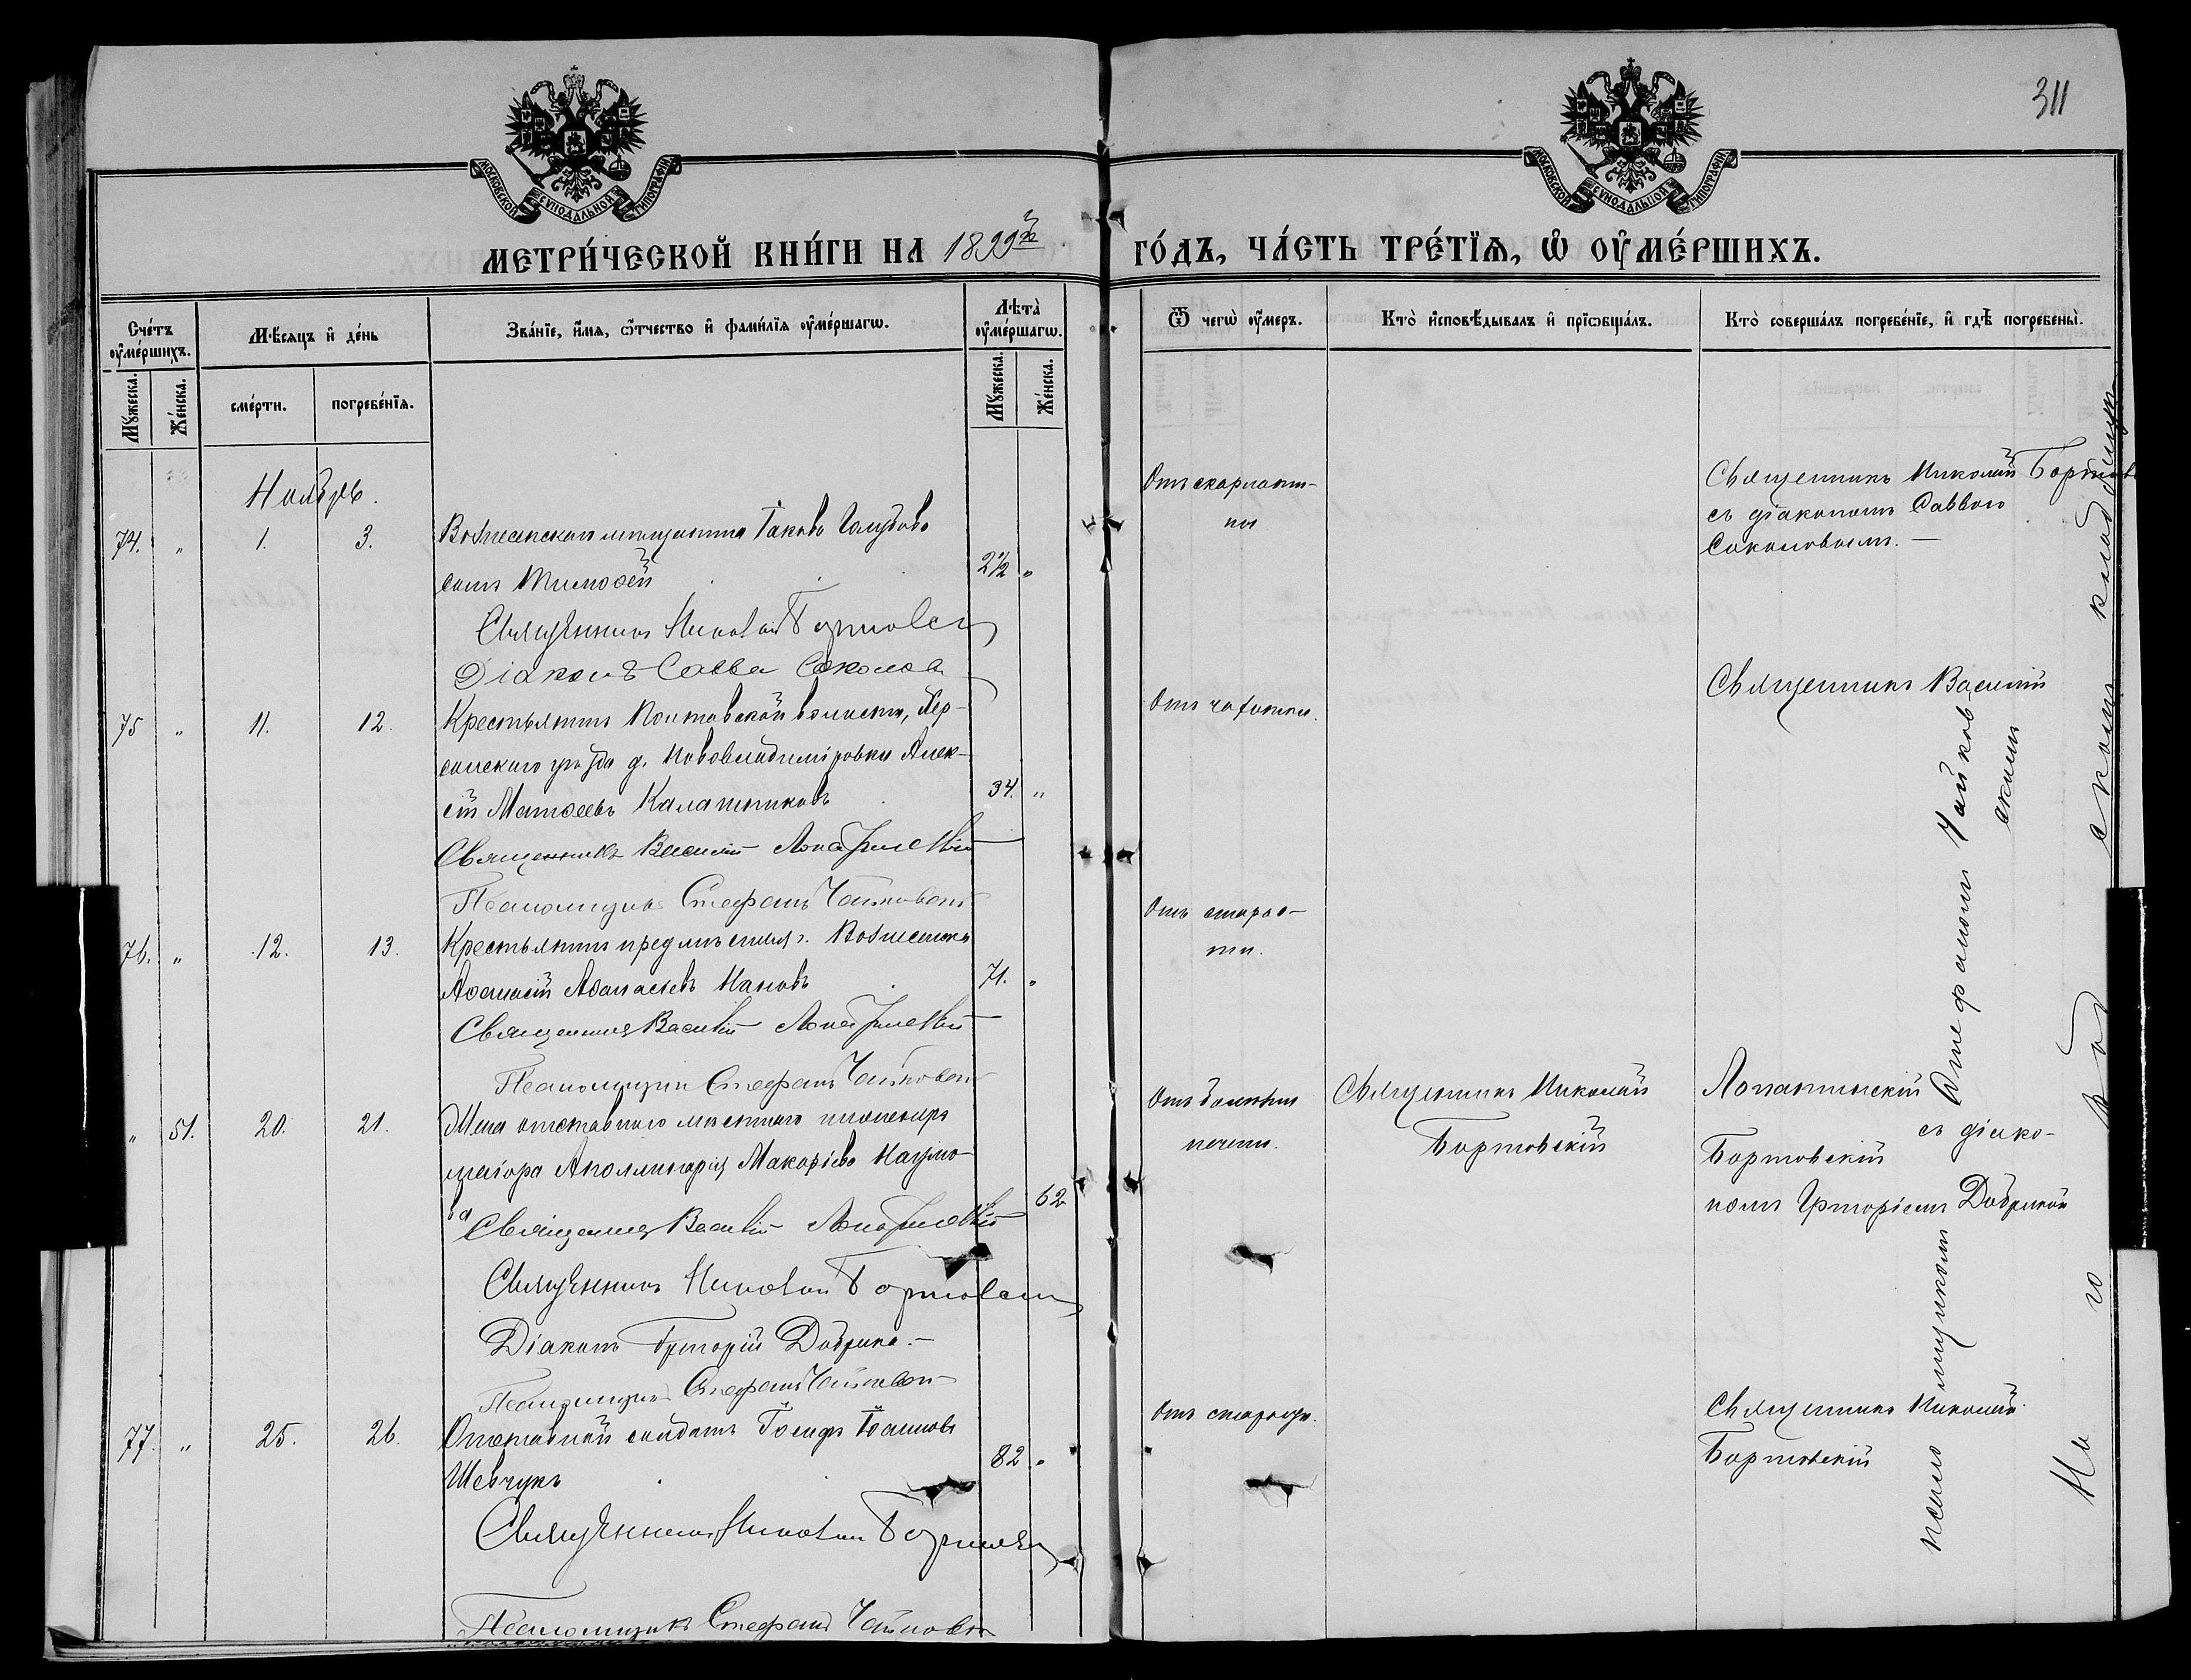 311
МОСКОВСКОЙ СУНОДАЛЬНОЙ ТИПОГРАФІИ
МОСКОВСКОЙ СУНОДАЛЬНОЙ ТИПОГРАФІИ
МЕТРИ́ЧЕСКОЙ КНИ́ГИ НА 1899й ГО́ДЪ, ЧА́СТЬ ТРЕ́ТЇѦ, Ѡ҆ ОУ҆МЕ́РШИХЪ.
Сче́тъ оу҆ме́ршихъ.
Мꙋ́жеска.
Же́нска.
Мѣ́сѧцъ и҆ де́нь
сме́рти.
погребе́нїѧ.
Зва́нїе, и҆́мѧ, ѻ҆́тчество и҆ фами́лїѧ оу҆ме́ршагѡ.
Лѣта̀ оу҆ме́ршагѡ.
Мꙋ́жеска.
Же́нска.
Ѿ чегѡ̀ оу҆́меръ.
Кто̀ и҆сповѣ́дывалъ и҆ прїѡбща́лъ.
Кто̀ соверша́лъ погребе́нїе, и҆ гдѣ̀ погребены̀.
Ноябрь.
74. " 1. 3. Вознесенскаго мѣщанина Іакова Голубова
сынъ Тимоѳей 2½ "
Отъ скарлати-
ны
Священникъ Николай Бортовскій
съ діакономъ Саввою
Соколовымъ.
Священникъ Николай Бортовскій
Діаконъ Савва Соколовъ
75 " 11. 12. Крестьянинъ Полтавской волости, Хер-
сонскаго уѣзда д. Нововладиміровки Алек-
сій Матѳеевъ Калашниковъ 34. "
Отъ чахотки.
Священникъ Василій
Священникъ Василій Лопатинскій
Псаломщикъ Стефанъ Чайковскій
76. " 12. 13. Крестьянинъ предмѣстія г. Вознесенска
Аѳанасій Аѳанасіевъ 71. "
Отъ старос-
ти.
Священникъ Василій Лопатинскій
Псаломщикъ Стефанъ Чайковскій
" 51. 20. 21. Жена отставного
маіора Аполлинарія Макаріева Наумо-
ва 62
Отъ болѣзни
печени.
Священникъ Николай
Бортовскій
Лопатинскій
Бортовскій съ діако-
номъ Григоріемъ Добрикой
Священникъ Василій Лопатинскій
Священникъ Николай Бортовскій
Діаконъ Григорій Добрика.
Псаломщикъ Стефанъ Чайковскій
77. " 25. 26. Отставной солдатъ Іосифъ Іоанновъ
Шевчукъ 82 "
Отъ старости.
Священникъ Николай
Бортовскій
Священникъ Николай Бортовскій
Псаломщикъ Стефанъ Чайковскій
псаломщикомъ Стефаномъ Чайков
скимъ
На кладбищѣ